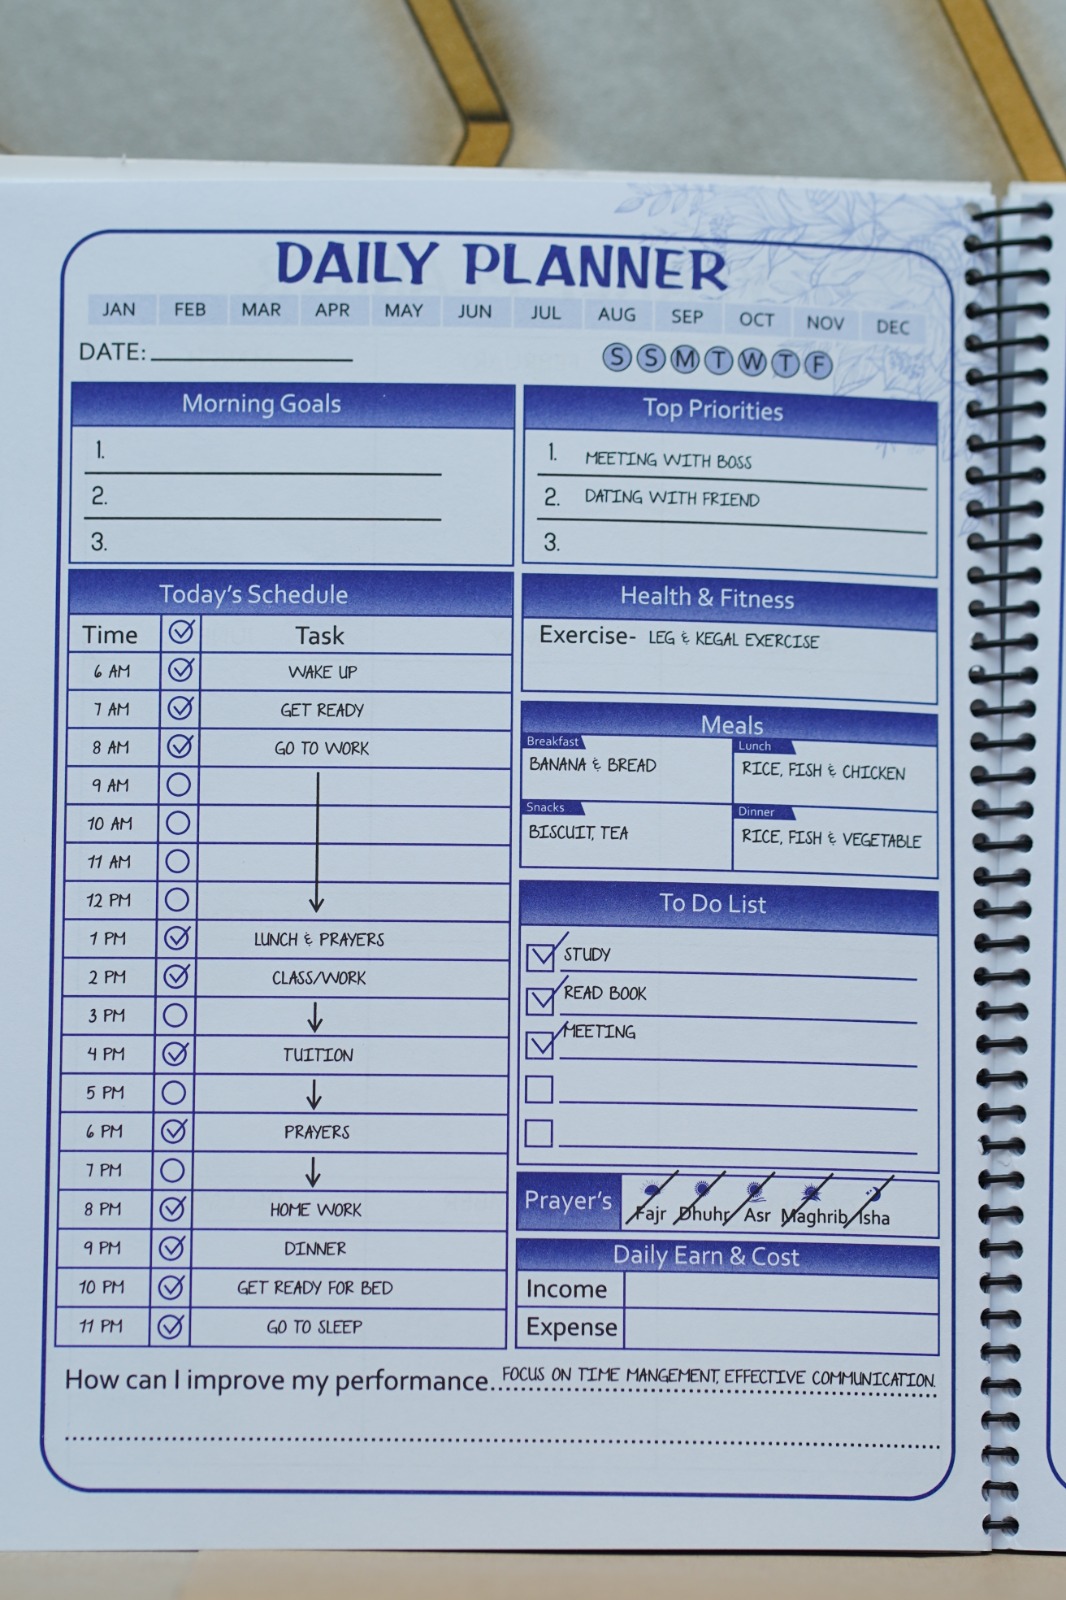 DAILY PLANNER
JAN FEB MAR APR MAY JUN JUL AUG SEP OCT NOV DEC
DATE:
S S M T W T F
Morning Goals
1.
2.
3.
Top Priorities
1. MEETING WITH BOSS
2. DATING WITH FRIEND
3.
Today's Schedule
Time Task
6 AM WAKE UP
7 AM GET READY
8 AM GO TO WORK
9 AM
10 AM
11 AM
12 PM
1 PM LUNCH & PRAYERS
2 PM CLASS/WORK
3 PM
4 PM TUITION
5 PM
6 PM PRAYERS
7 PM
8 PM HOME WORK
9 PM DINNER
10 PM GET READY FOR BED
11 PM GO TO SLEEP
Health & Fitness
Exercise- LEG & KEGAL EXERCISE
Meals
Breakfast
BANANA & BREAD
Lunch
RICE, FISH & CHICKEN
Snacks
BISCUIT, TEA
Dinner
RICE, FISH & VEGETABLE
To Do List
STUDY
READ BOOK
MEETING
Prayer's
Fajr Dhuhr Asr Maghrib Isha
Daily Earn & Cost
Income
Expense
How can I improve my performance... FOCUS ON TIME MANGEMENT, EFFECTIVE COMMUNICATION.